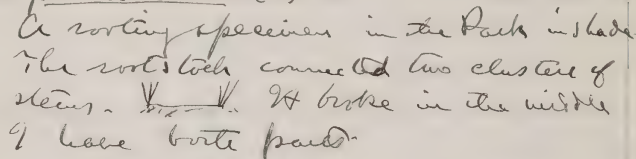 A rooting specimen in the Park in shade
The rootstock connected two clusters of
stems. It broke in the middle
I have both parts.